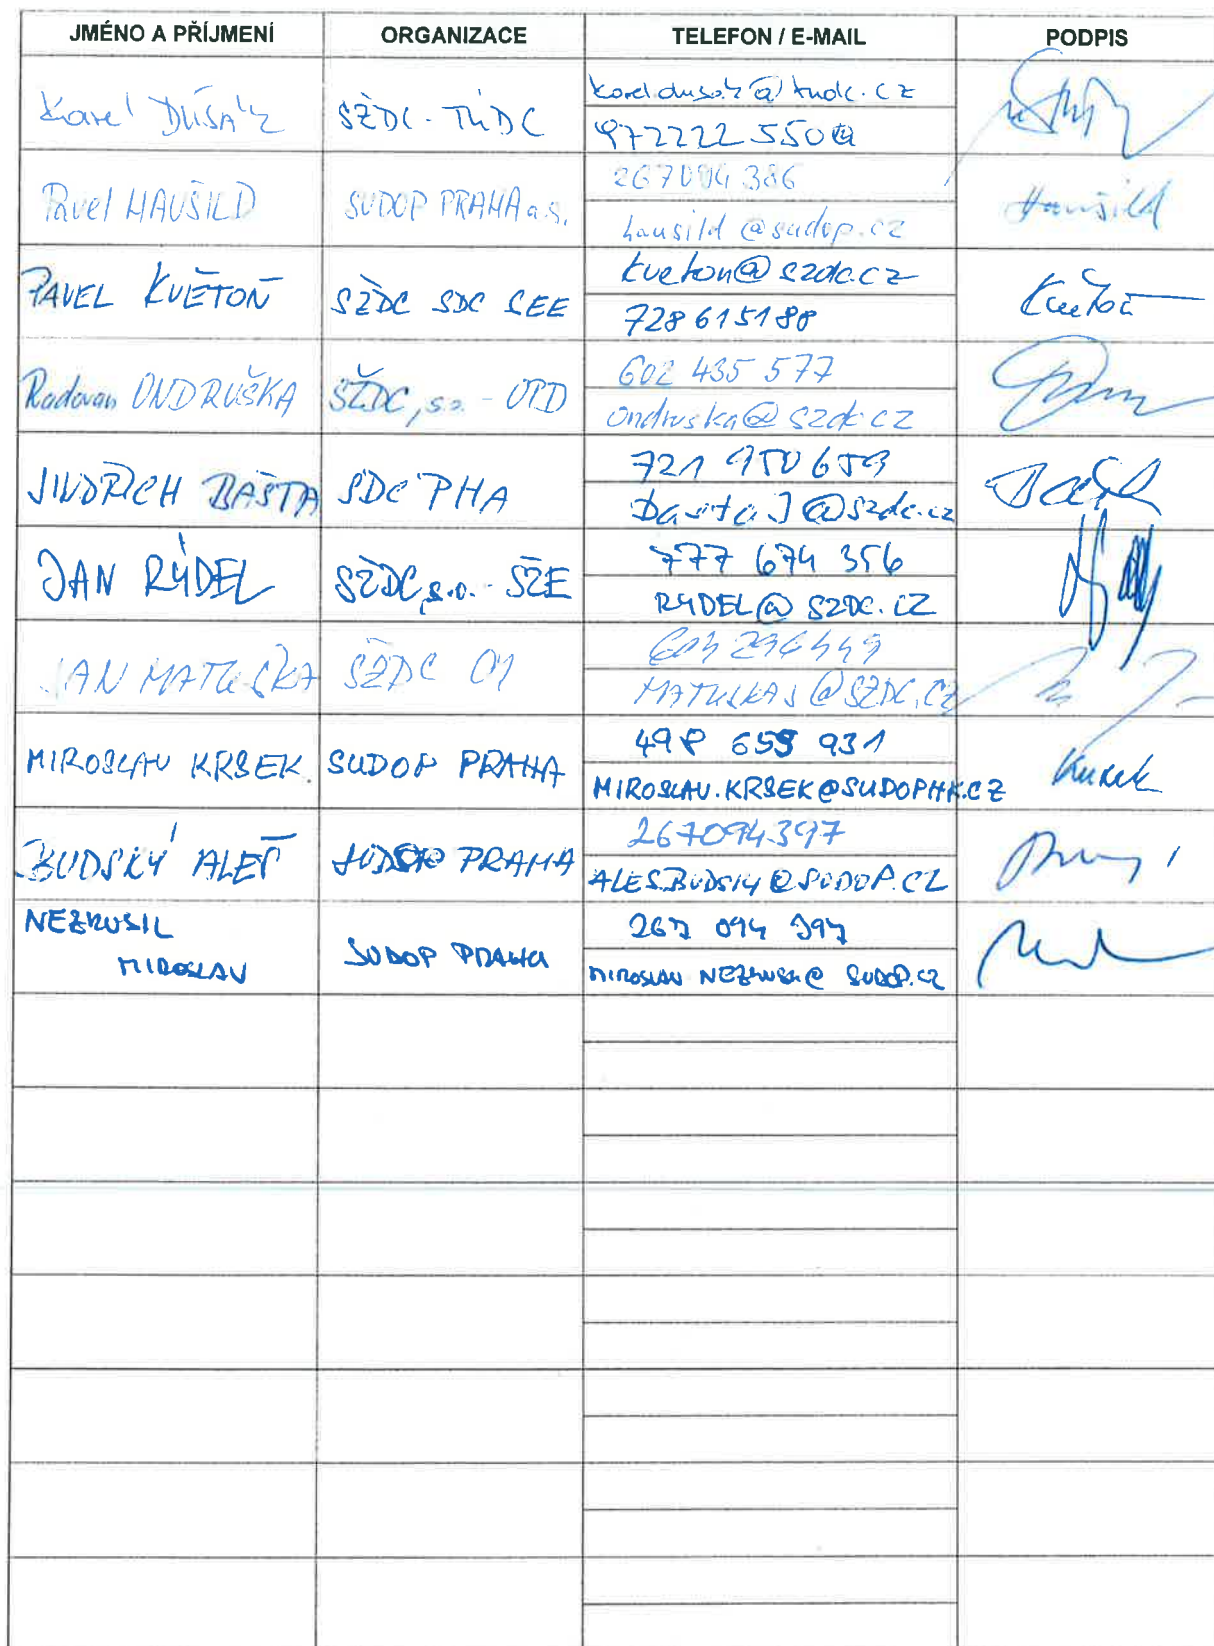 JMÉNO A PŘÍJMENÍ ORGANIZACE TELEFON / E-MAIL PODPIS
Karel DUŠÁ SŽDC - TÚDC
972222 550
Pavel HAUŠILD SUDOP PRAHA a.s. 267094386 Haušild
hausild@sudop.cz
PAVEL KVĚTOŇ SŽDC SDC SEE kveton@szdc.cz Květoň
728 615188
Radovan ONDRUŠKA SŽDC, s.o. - OPD 602 435 577
ondruska@szdc.cz
JINDŘICH BAŠTA SDC PHA 721 950 659
BastaJ@szdc.cz
JAN RÝDEL SŽDC, s.o. - SŽE 777 674 356
RYDEL@SZDC.CZ
JAN MATUŠKA SŽDC
MATUSKAJ@SZDC.CZ
MIROSLAV KRSEK. SUDOP PRAHA 498 659 931
MIROSLAV.KRSEK@SUDOPHK.CZ
BUDSKÝ ALEŠ SUDOP PRAHA 267094397
ALES.BUDSKY@SUDOP.CZ
NEZKUSIL
MIROSLAV SUDOP PRAHA 267 094 397
MIROSLAV NEZKUSIL@SUDOP.CZ